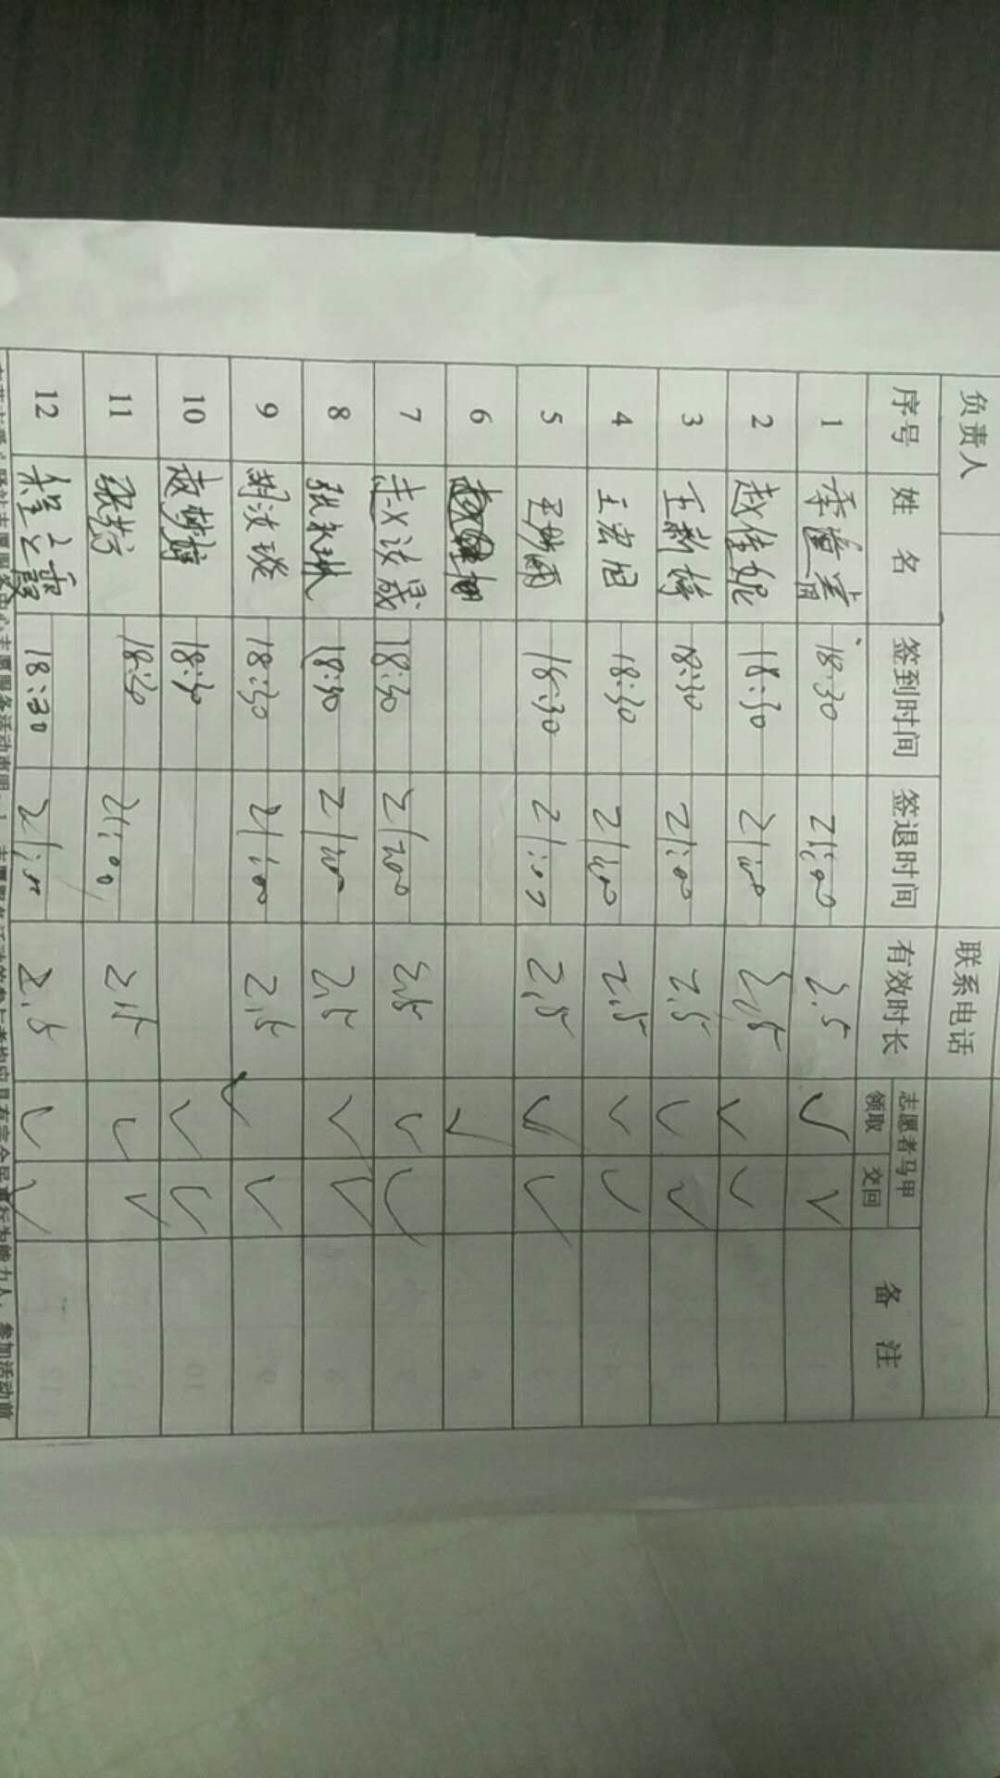 负责人 联系电话
序号 姓 名 签到时间 签退时间 有效时长 志愿者马甲 领取 交回 备 注
1 18:30 21:00 2.5 ✓ ✓
2 赵佳妮 18:30 21:00 2.5 ✓ ✓
3 王新婷 18:30 21:00 2.5 ✓ ✓
4 王宏旭 18:30 21:00 2.5 ✓ ✓
5 18:30 21:00 2.5 ✓ ✓
6 ✓
7 赵汝晟 18:30 21:00 2.5 ✓ ✓
8 18:30 21:00 2.5 ✓ ✓
9 18:30 21:00 2.5 ✓ ✓
10 18:30 ✓ ✓
11 张芳 18:30 21:00 2.5 ✓ ✓
12 程之霞 18:30 21:00 2.5 ✓ ✓